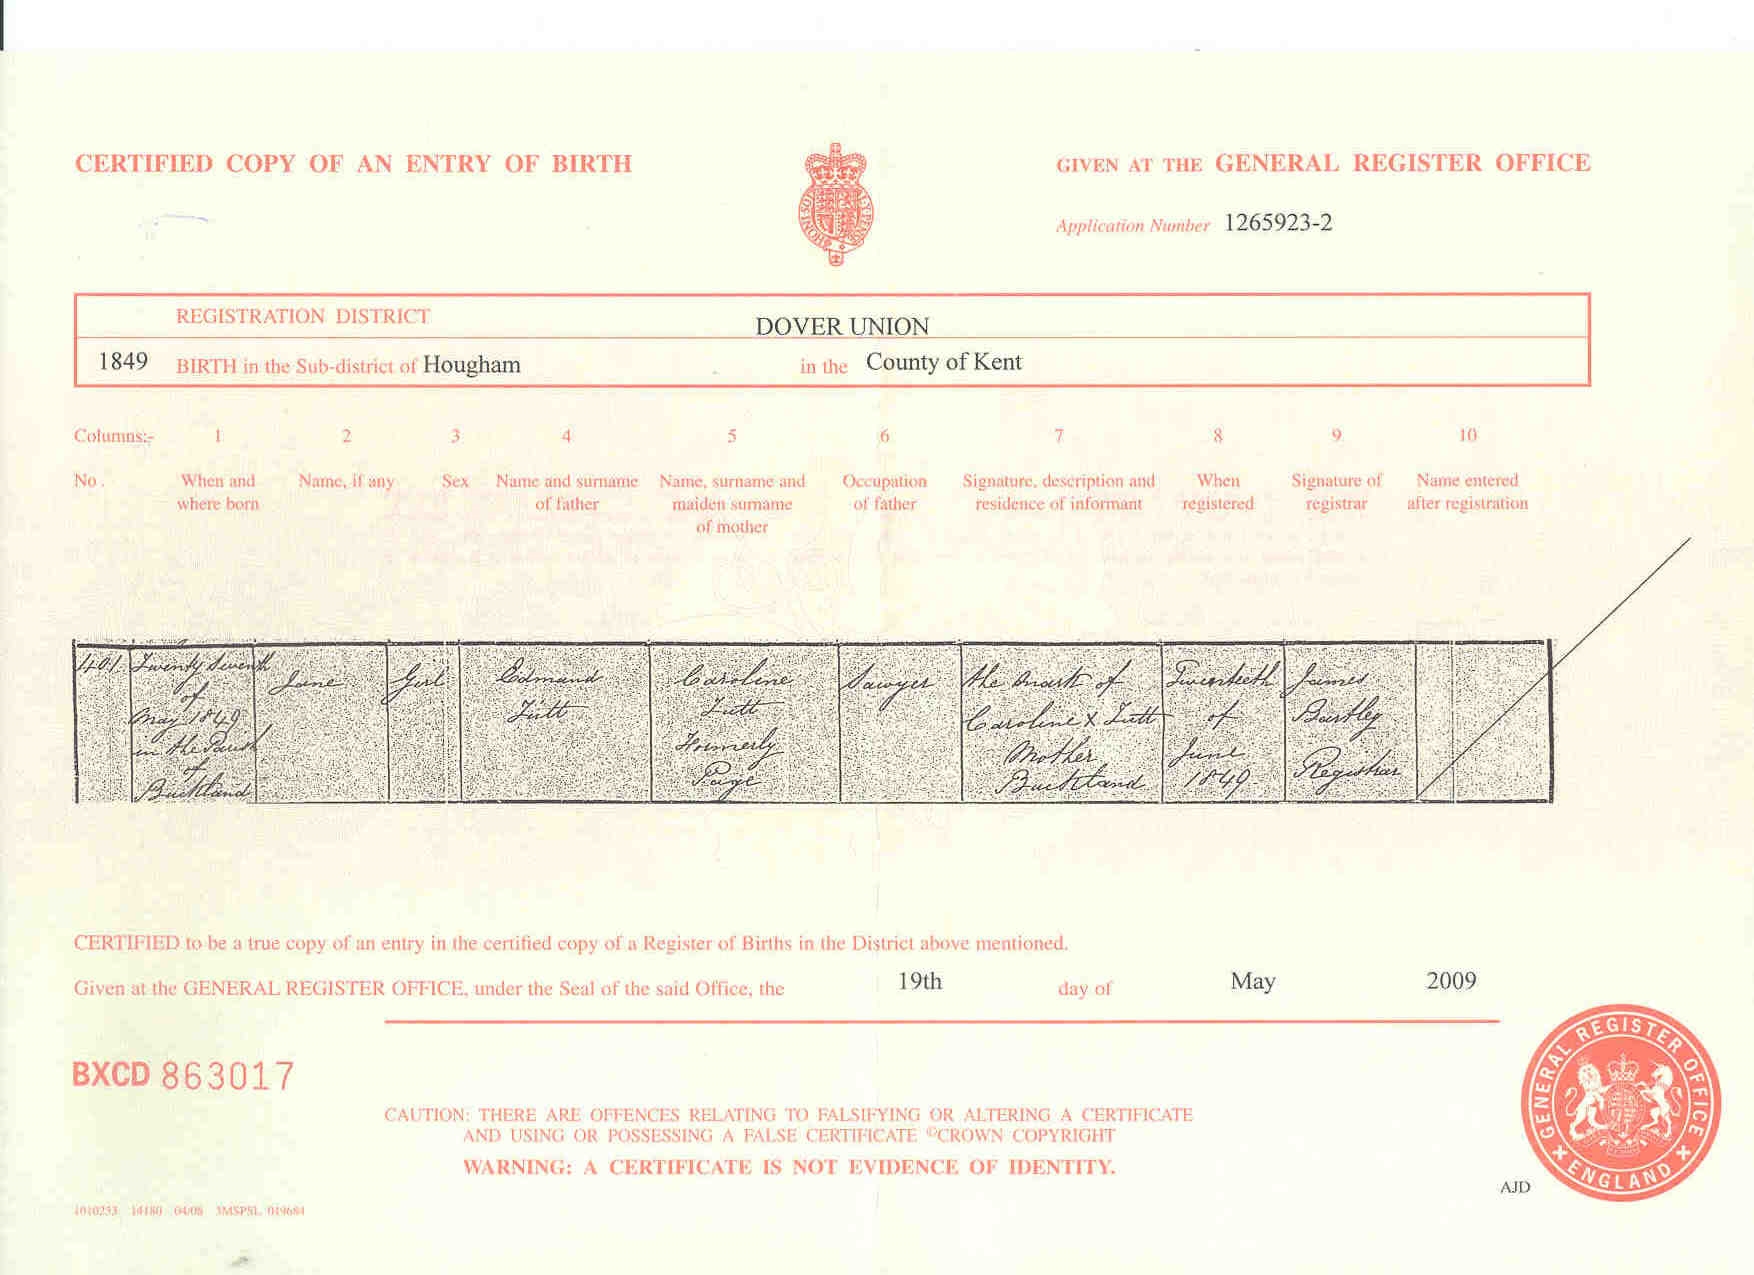 CERTIFIED COPY OF AN ENTRY OF BIRTH
GIVEN AT THE GENERAL REGISTER OFFICE
Application Number 1265923-2
REGISTRATION DISTRICT DOVER UNION
1849 BIRTH in the Sub-district of Hougham in the County of Kent
Columns:- 1 2 3 4 5 6 7 8 9 10
No. When and where born
Name, if any
Sex
Name and surname of father
Name, surname and maiden surname of mother
Occupation of father
Signature, description and residence of informant
When registered
Signature of registrar
Name entered after registration
401
Twenty Seventh
of
May 1849
in the Parish
of
Buckland
Jane
Girl
Edmund
Tutt
Caroline
Tutt
Formerly
Paige
Sawyer
The mark of
Caroline X Tutt
Mother
Buckland
Twentieth
of
June
1849
James
Bartley
Registrar
CERTIFIED to be a true copy of an entry in the certified copy of a Register of Births in the District above mentioned.
Given at the GENERAL REGISTER OFFICE, under the Seal of the said Office, the 19th day of May 2009
BXCD 863017
CAUTION: THERE ARE OFFENCES RELATING TO FALSIFYING OR ALTERING A CERTIFICATE
AND USING OR POSSESSING A FALSE CERTIFICATE ©CROWN COPYRIGHT
WARNING: A CERTIFICATE IS NOT EVIDENCE OF IDENTITY.
GENERAL REGISTER OFFICE
ENGLAND
AJD
1010233 14180 04/08 3MSPSL 019684